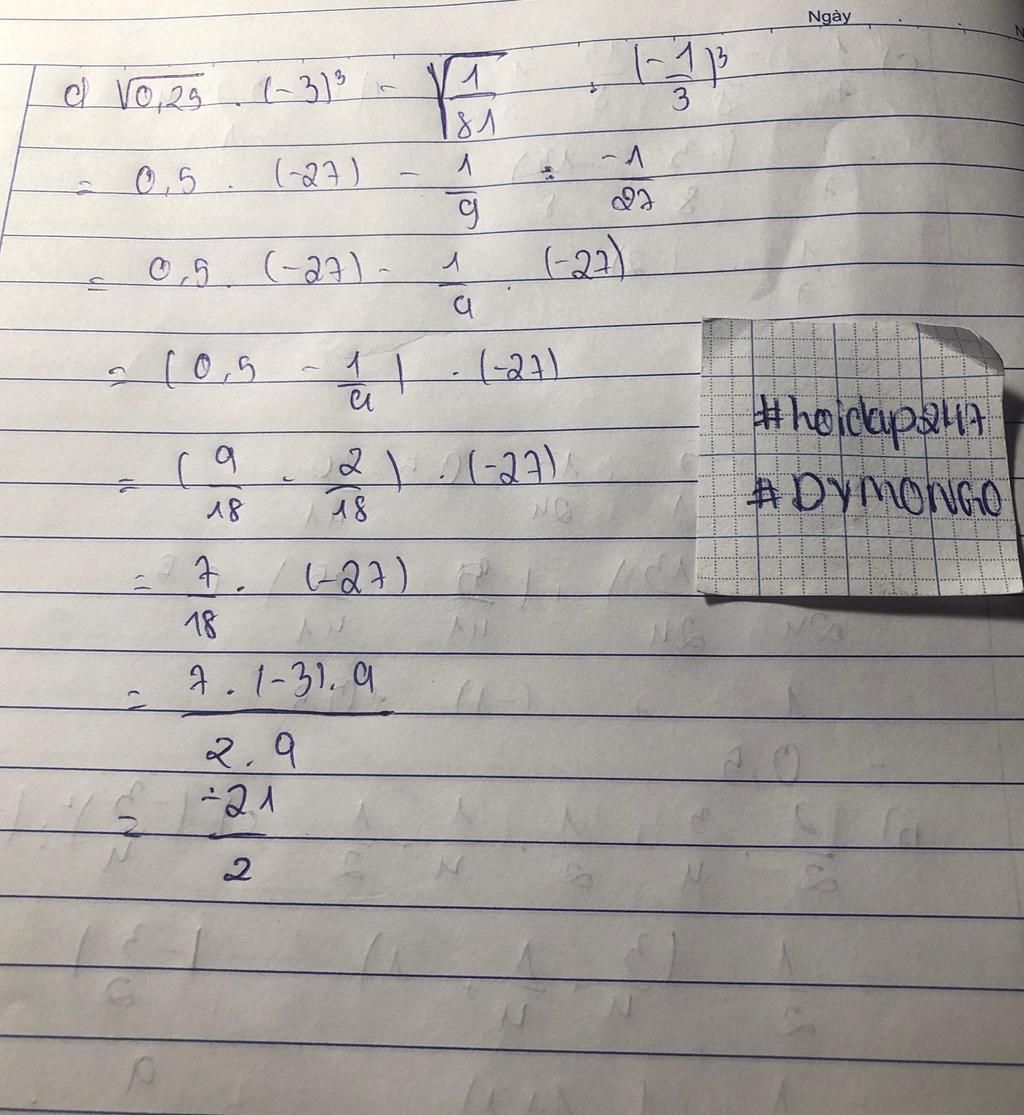 Ngày
c) √0,25 . (-3)³ - √(1/81) : (-1/3)³
= 0,5 . (-27) - 1/9 : -1/27
= 0,5 . (-27) - 1/9 . (-27)
= (0,5 - 1/9) . (-27)
= (9/18 - 2/18) . (-27)
= 7/18 . (-27)
= 7 . (-3) . 9 / 2 . 9
= -21/2
#hoidap247
#DYMONGO